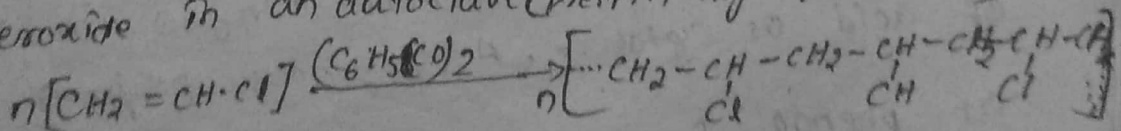 eroxide in an autoclave
n[CH2 = CH·Cl] (C6H5CO)2 → n[...CH2-CH-CH2-CH-CH2-CH-CH
Cl CH Cl